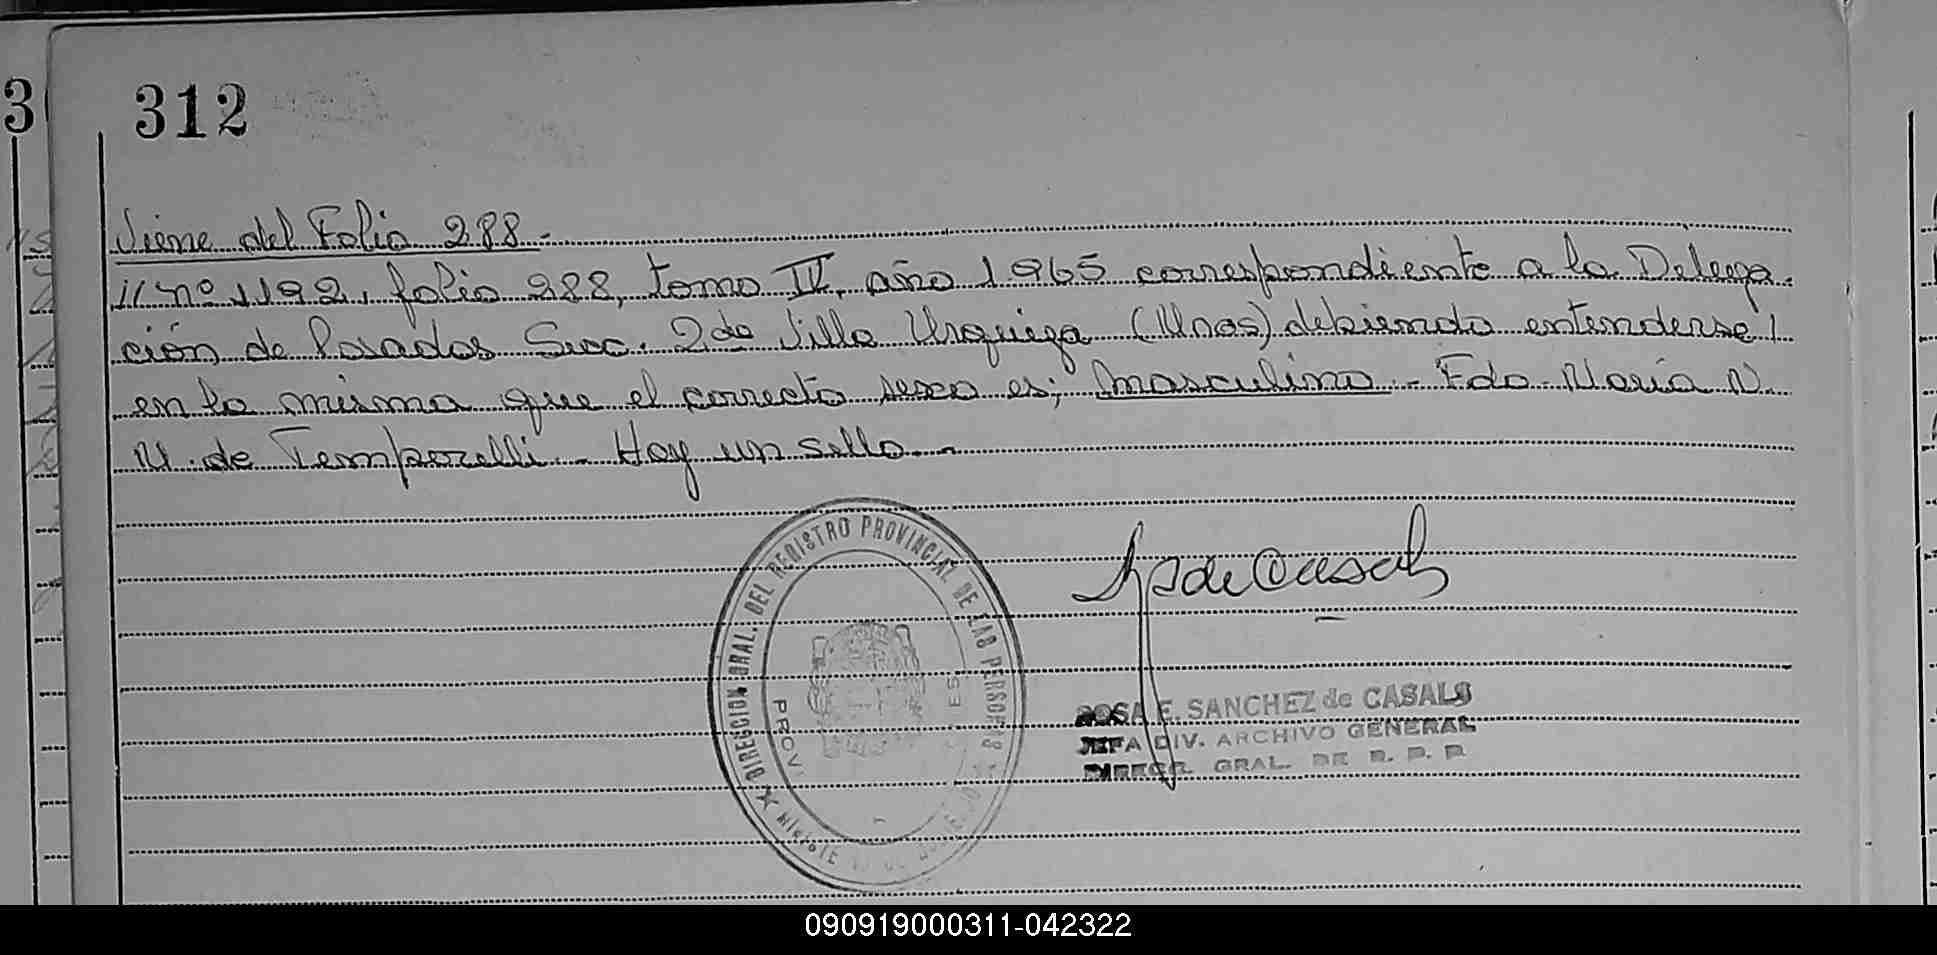 3
312
Viene del Folio 288.-
// nº 1192, folio 288, tomo IV, año 1965 correspondiente a la Delega-
ción de Posadas Secc. 2da Villa Urquiza (Mnes) debiendo entenderse
en la misma que el correcto sexo es; Masculino.- Fdo. María N.
M. de Temporelli.- Hay un sello.-
DIRECCION GRAL. DEL REGISTRO PROVINCIAL DE LAS PERSONAS
PROVI
ES
S. de Casals
ROSA E. SANCHEZ de CASALS
JEFA DIV. ARCHIVO GENERAL
DIRECC. GRAL. DE R. P. P.
090919000311-042322